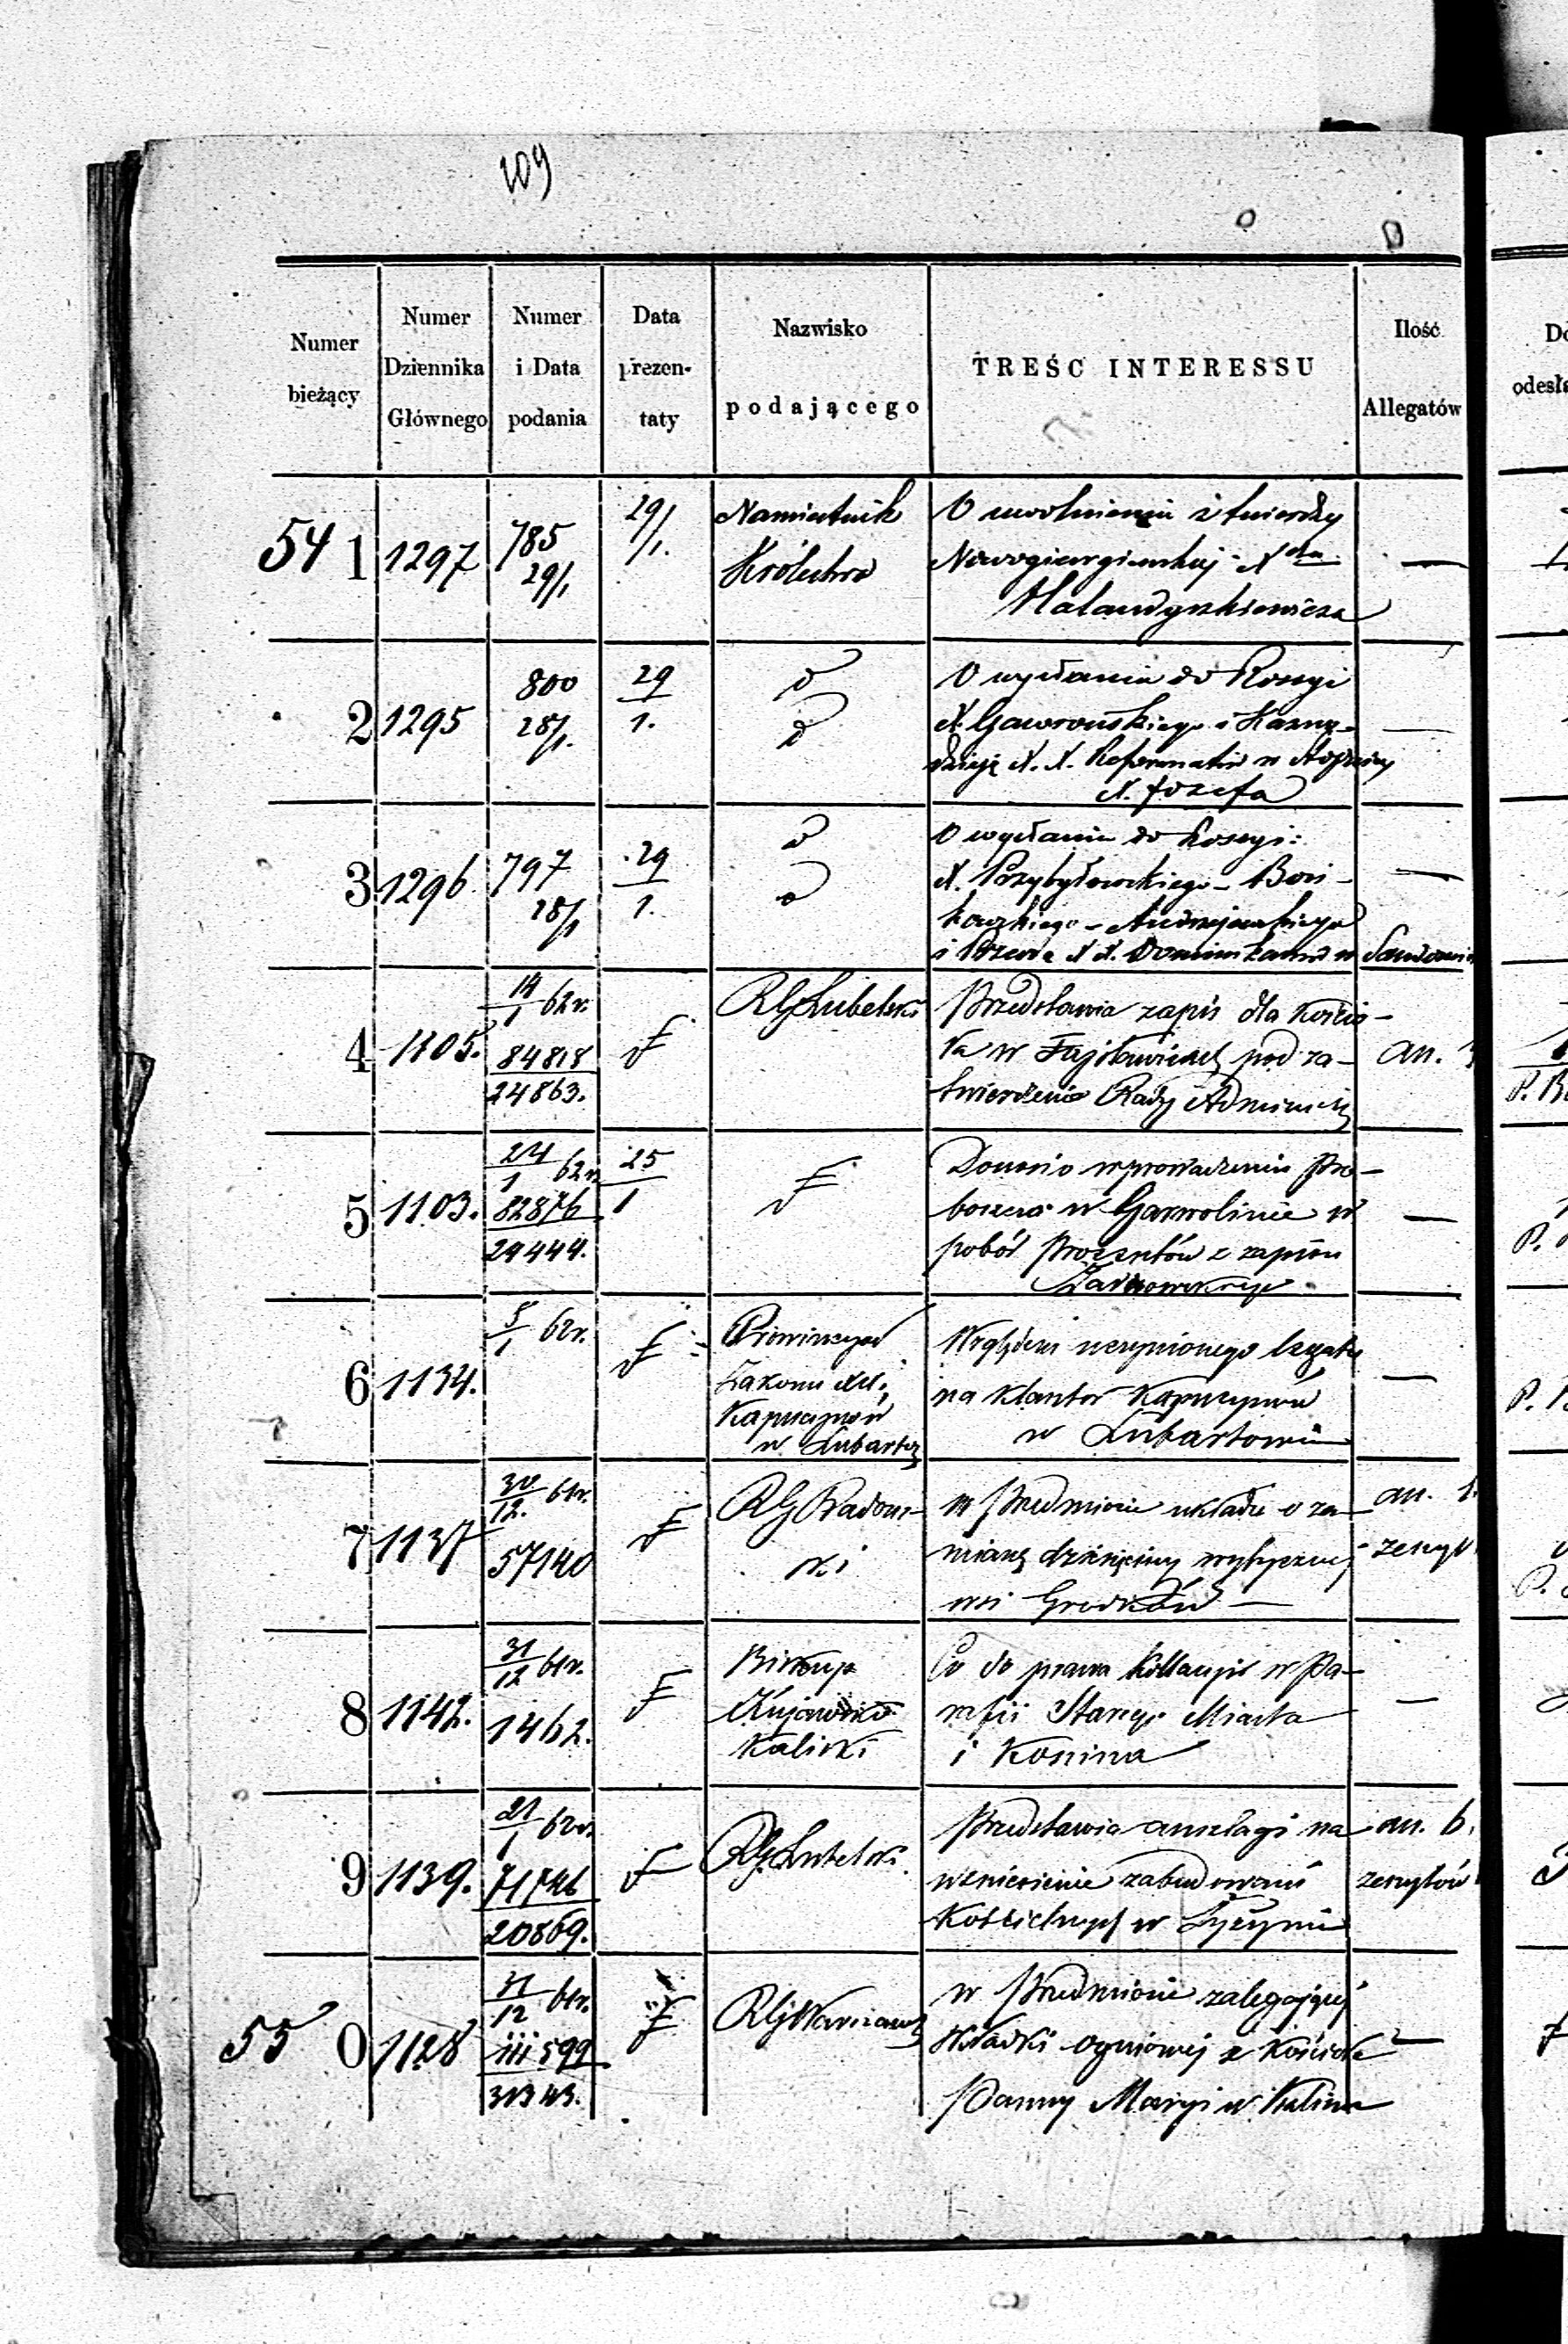 109
Numer bieżący
Numer Dziennika Głównego
Numer i Data podania
Data prezen- taty
Nazwisko podającego
TREŚC INTERESSU
Ilość Allegatów
54 1
1297
785
29/1
29/1.
Namiestnik
Królestwa
O uwolnieniu z twierdzy
Nowogieorgiewskiej X dza
—
2
1295
800
28/1.
29
1.
d
d
O wysłaniu do Rossyi
X. Gaworońskiego i Kazno-
dzieję X. X. Reformatów w
X. Józefa
—
3
1296
797
28/1
29
1.
d
o
O wysłaniu do Rossyi:
X. Przybyłowskiego - Boń-
kowskiego - Andrzejewskiego
i X X. Dominikanów w Sandomie
—
4
1105.
14/1 62 r.
84818
24863.
RG Lubelski
Przedstawia zapis dla kościo-
ła w Fajsławicach pod za-
twierdzenie Rady Administ
an.
5
1103.
24/1 62 r.
82876
29444.
25
1
Donosi o wprowadzeniu Pro-
boszcza w Garwolinie w
pobór procentów z zapisu
—
6
1134.
5/1 62 r.
Prowincyał
Zakonu XX.
Kapucynów
w Lubarto
Względem uczynionego legatu
na klasztor Kapucynów
w Lubartowie
—
7
1137
30/12. 61 r.
57140
RG Radom-
ski
W przedmiocie układu o za-
mianę dziesięciny wytycznej
wsi Grodków —
an. 1.
zeszyt
8
1142.
31/12 61 r.
1462.
Biskup
Kujawsko
Kaliski
Co do prawa kollacyi w Pa-
rafii Starego Miasta
i Konina
—
9
1139.
21/1 62 r.
71746
20869.
RG Lubelski.
Przedstawia anszlagi na
wzniesienie zabudowań
Kościelnych w Łysyni
an. 6.
zeszytów
55 0
1128
31/12 61 r.
111599
31343.
RG Warszaws
W przedmiocie zalegającej
składki ogniowej z kościoła
Panny Maryi w Kaliszu
—